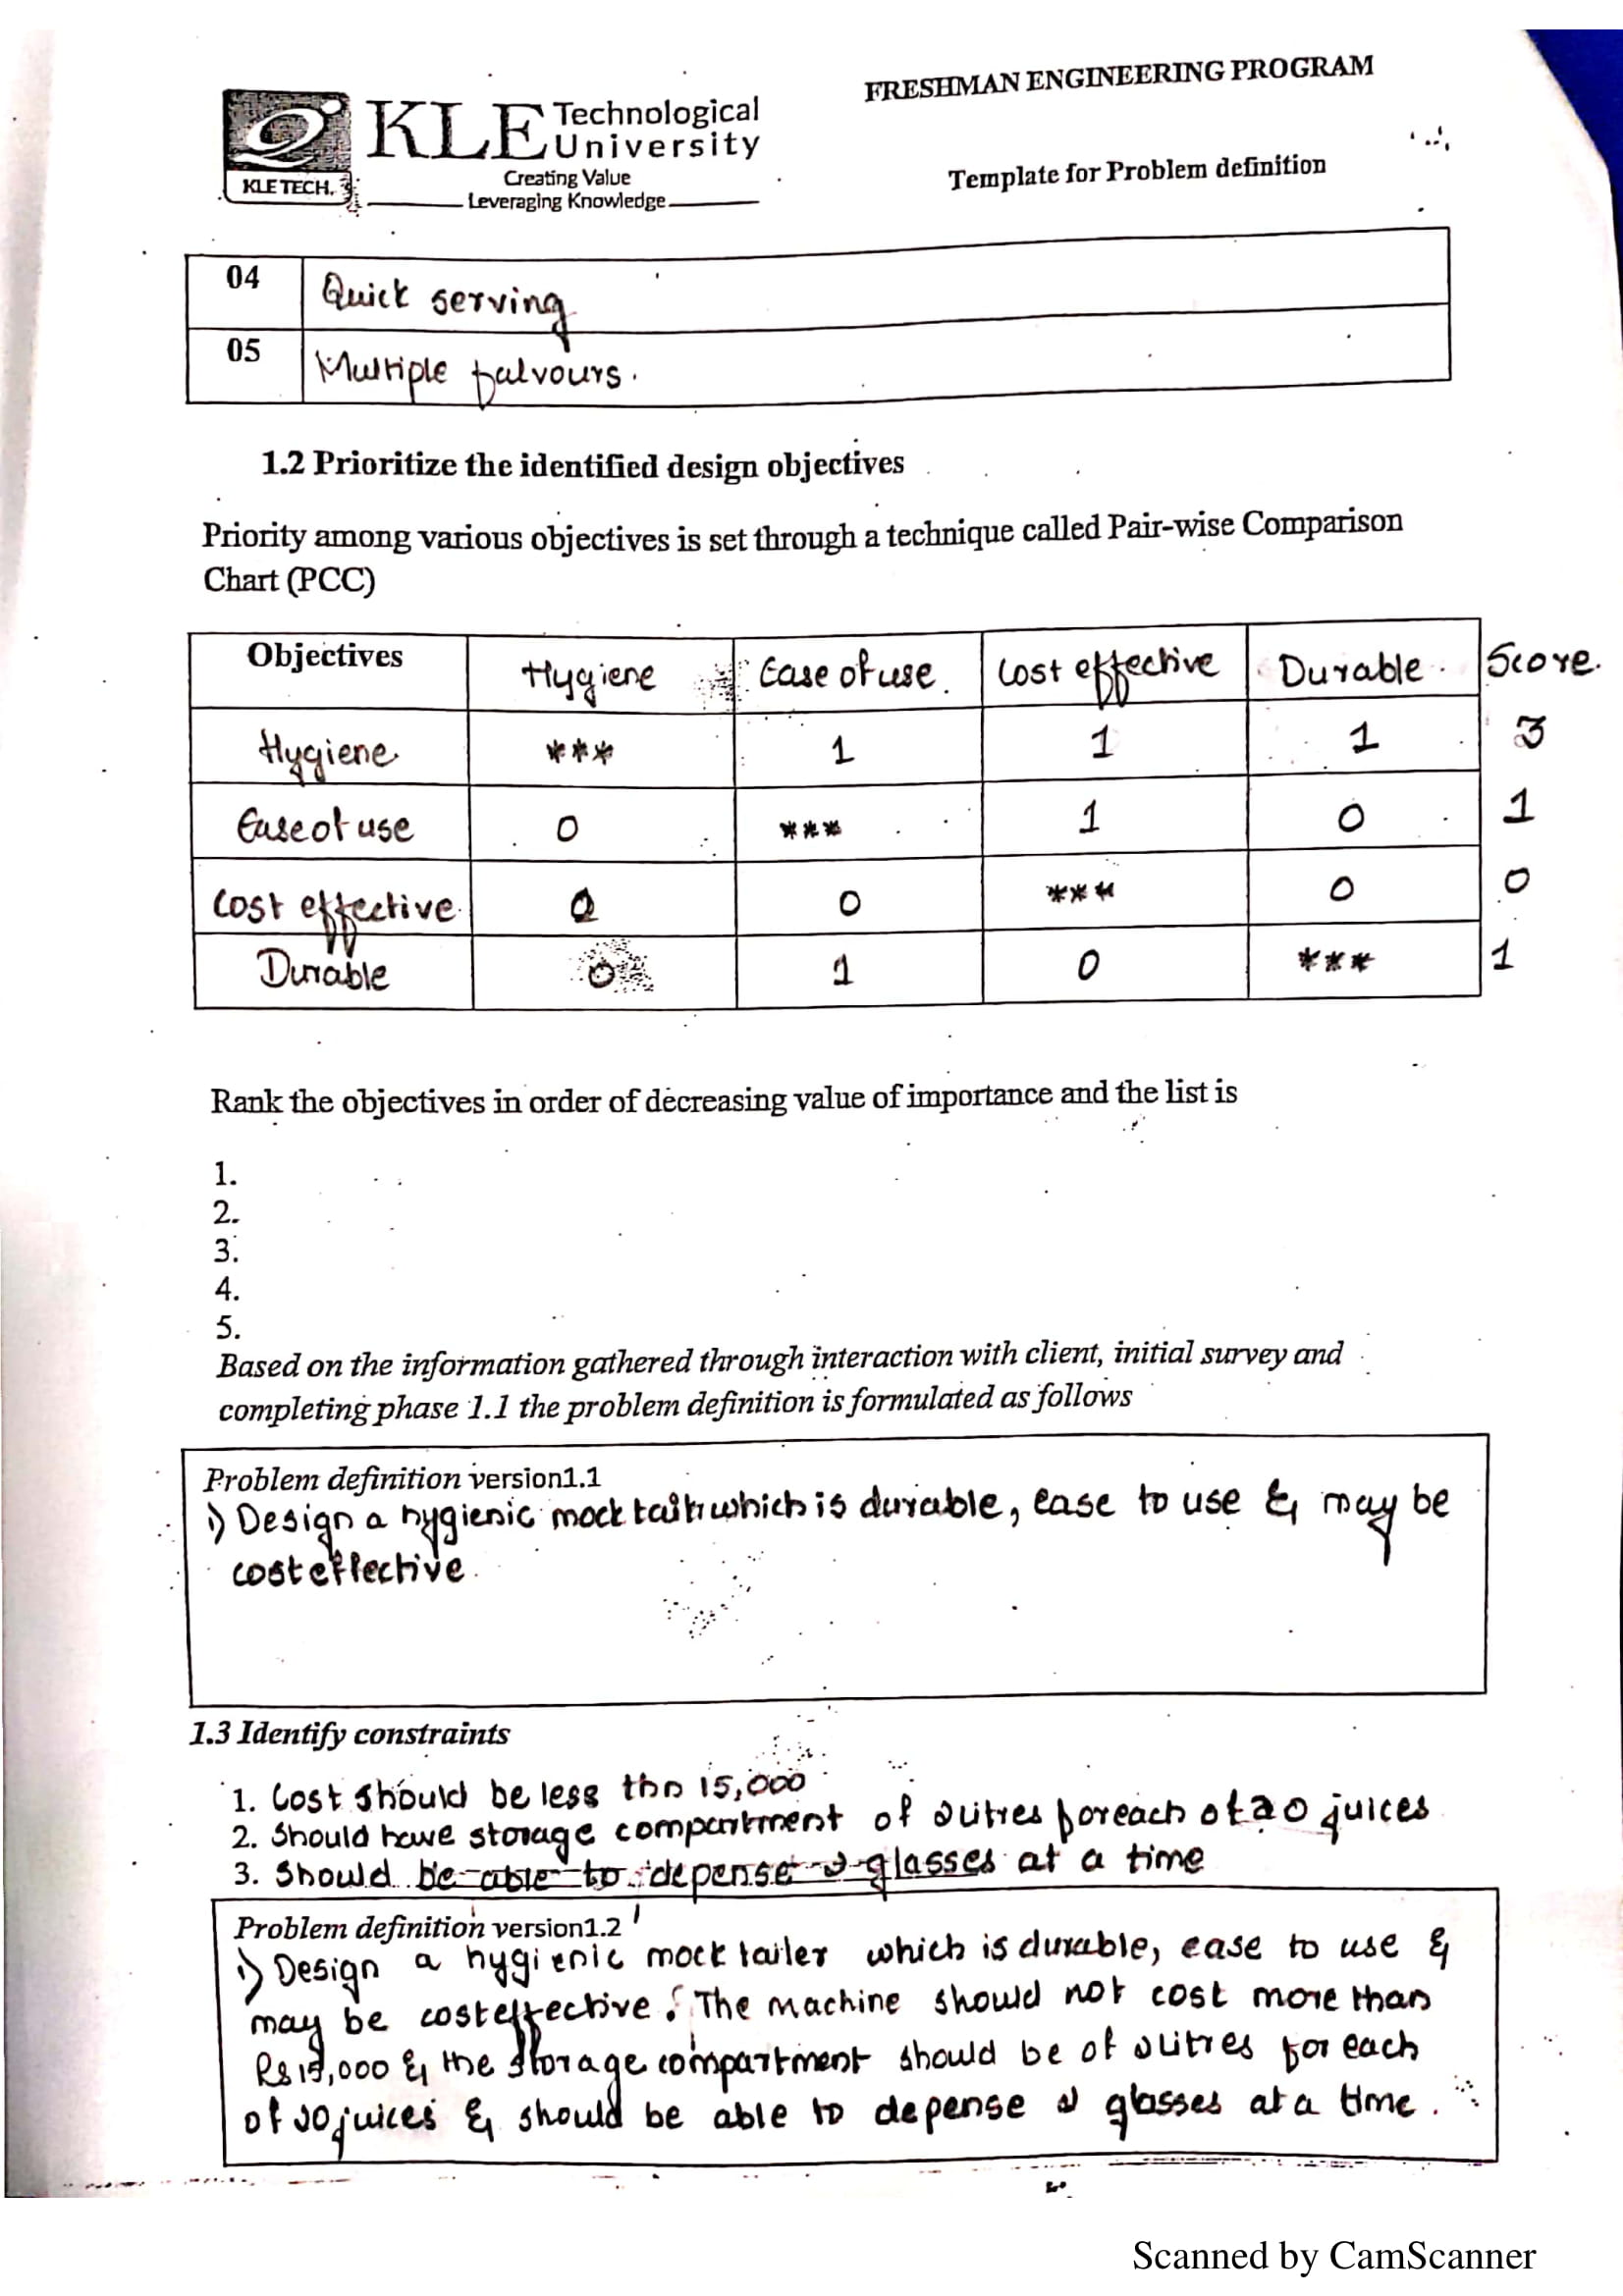 FRESHMAN ENGINEERING PROGRAM
KLE Technological University
KLE TECH.
Creating Value
Leveraging Knowledge
Template for Problem definition
04 Quick serving
05 Multiple falvours.
1.2 Prioritize the identified design objectives
Priority among various objectives is set through a technique called Pair-wise Comparison
Chart (PCC)
Objectives Hygiene Ease of use. Cost effective Durable. Score.
Hygiene *** 1 1 1 3
Ease of use 0 *** 1 0 1
Cost effective 0 0 *** 0 0
Durable 0 1 0 *** 1
Rank the objectives in order of decreasing value of importance and the list is
1.
2.
3.
4.
5.
Based on the information gathered through interaction with client, initial survey and
completing phase 1.1 the problem definition is formulated as follows
Problem definition version1.1
1) Design a hygienic mock which is durable, ease to use & may be
cost effective.
1.3 Identify constraints
1. Cost should be less thn 15,000
2. Should have storage compartment of 2 litres for each of 20 juices
3. Should be able to depense 2 glasses at a time
Problem definition version1.2
1) Design a hygienic mock tailer which is durable, ease to use &
may be cost effective. The machine should not cost more than
Rs 15,000 & the storage compartment should be of 2 litres for each
of 20 juices & should be able to depense 2 glasses at a time.
Scanned by CamScanner